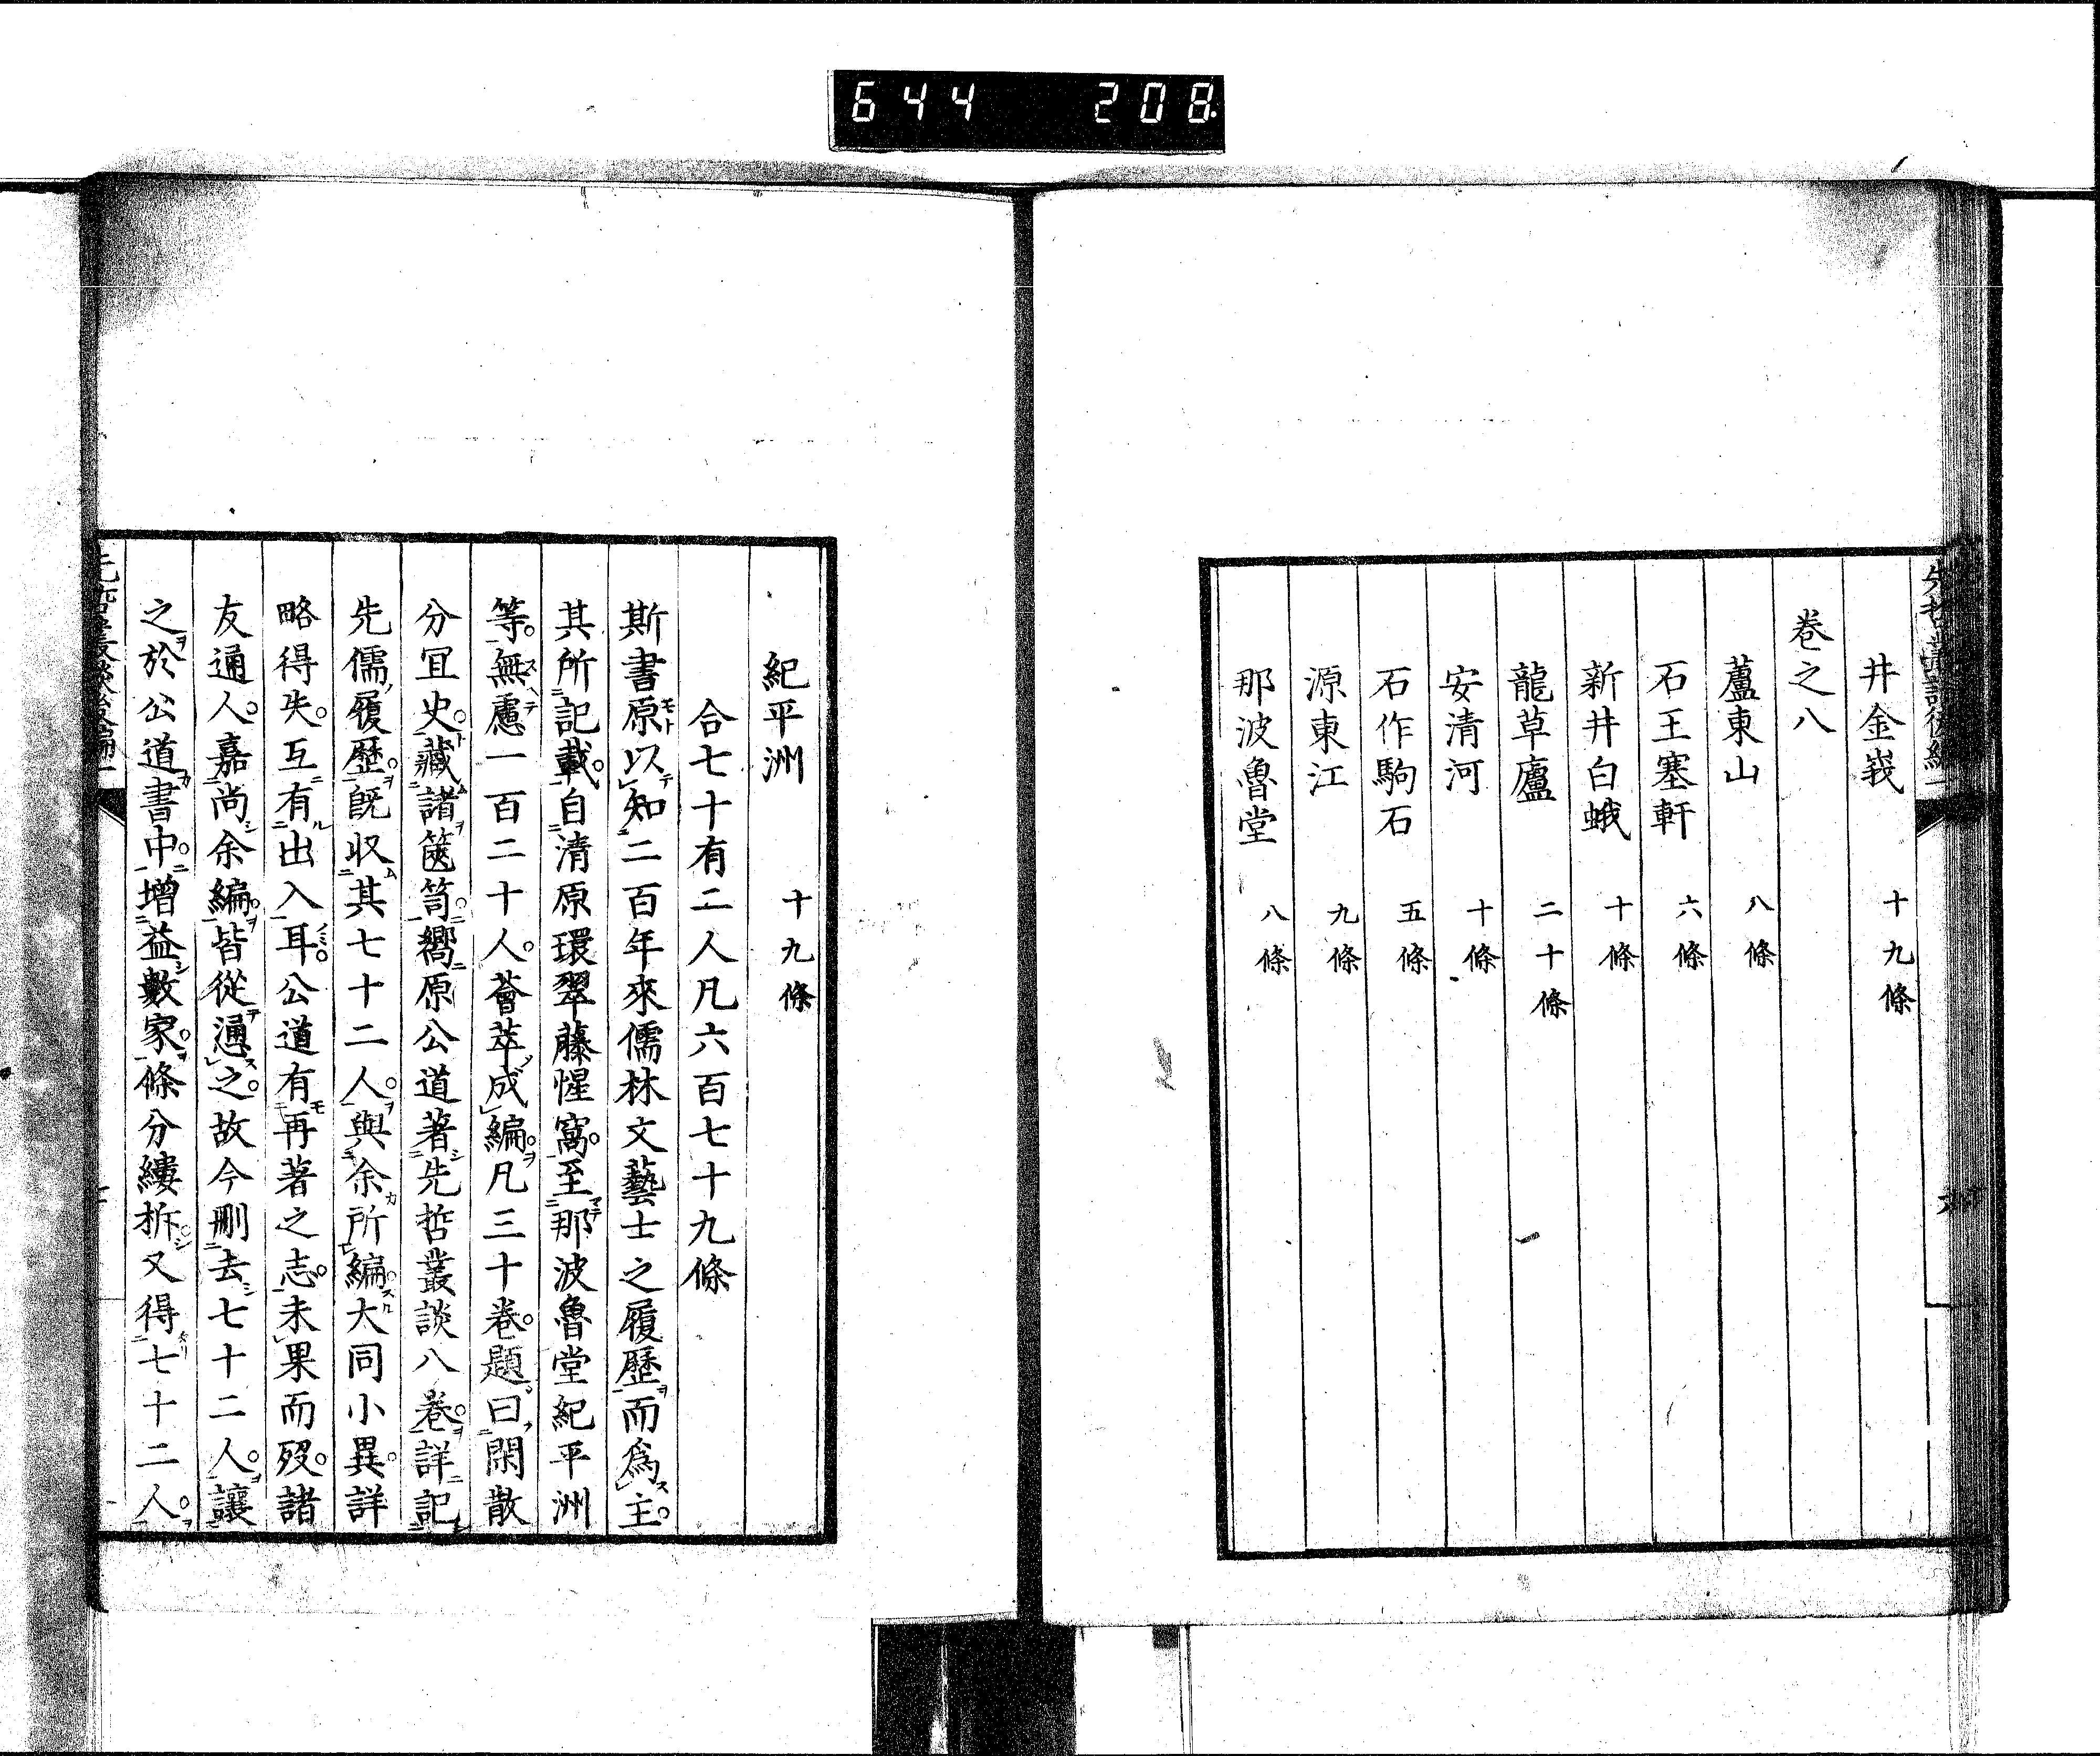 644 208
先哲叢談後編一
井金峩 十九條
卷之八
蘆東山 八條
石王塞軒 六條
新井白蛾 十條
龍草廬 二十條
安清河 十條
石作駒石 五條
源東江 九條
那波魯堂 八條
紀平洲 十九條
合七十有二人凡六百七十九條
斯書原以知二百年來儒林文藝士之履歷而爲主
其所記載自清原環翠藤惺窩至那波魯堂紀平洲
等無慮一百二十人薈萃成編凡三十卷題曰閑散
分冝史藏諸篋笥嚮原公道著先哲叢談八卷詳記
先儒履歷旣収其七十二人與余所編大同小異詳
略得失互有出入耳公道有再著之志未果而歿諸
友通人嘉尚余編皆從慂之故今刪去七十二人讓
之於公道書中增益數家條分縷拆又得七十二人